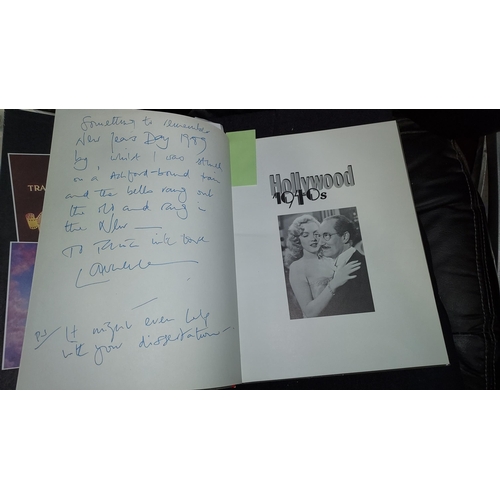 TRA
Something to remember
New Years Day 1989
by, whilst I was stuck
on a Ashford-bound train
and the bells rang out
the old and rang in
the New —
To with love
P.S/ It might even help
with your dissertation —
Hollywood
1940s